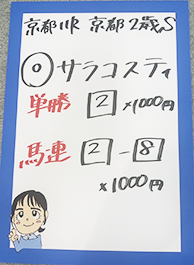 京都11R 京都2歳S
◎サラコスティ
単勝 2 ×1000円
馬連 2-8
×1000円